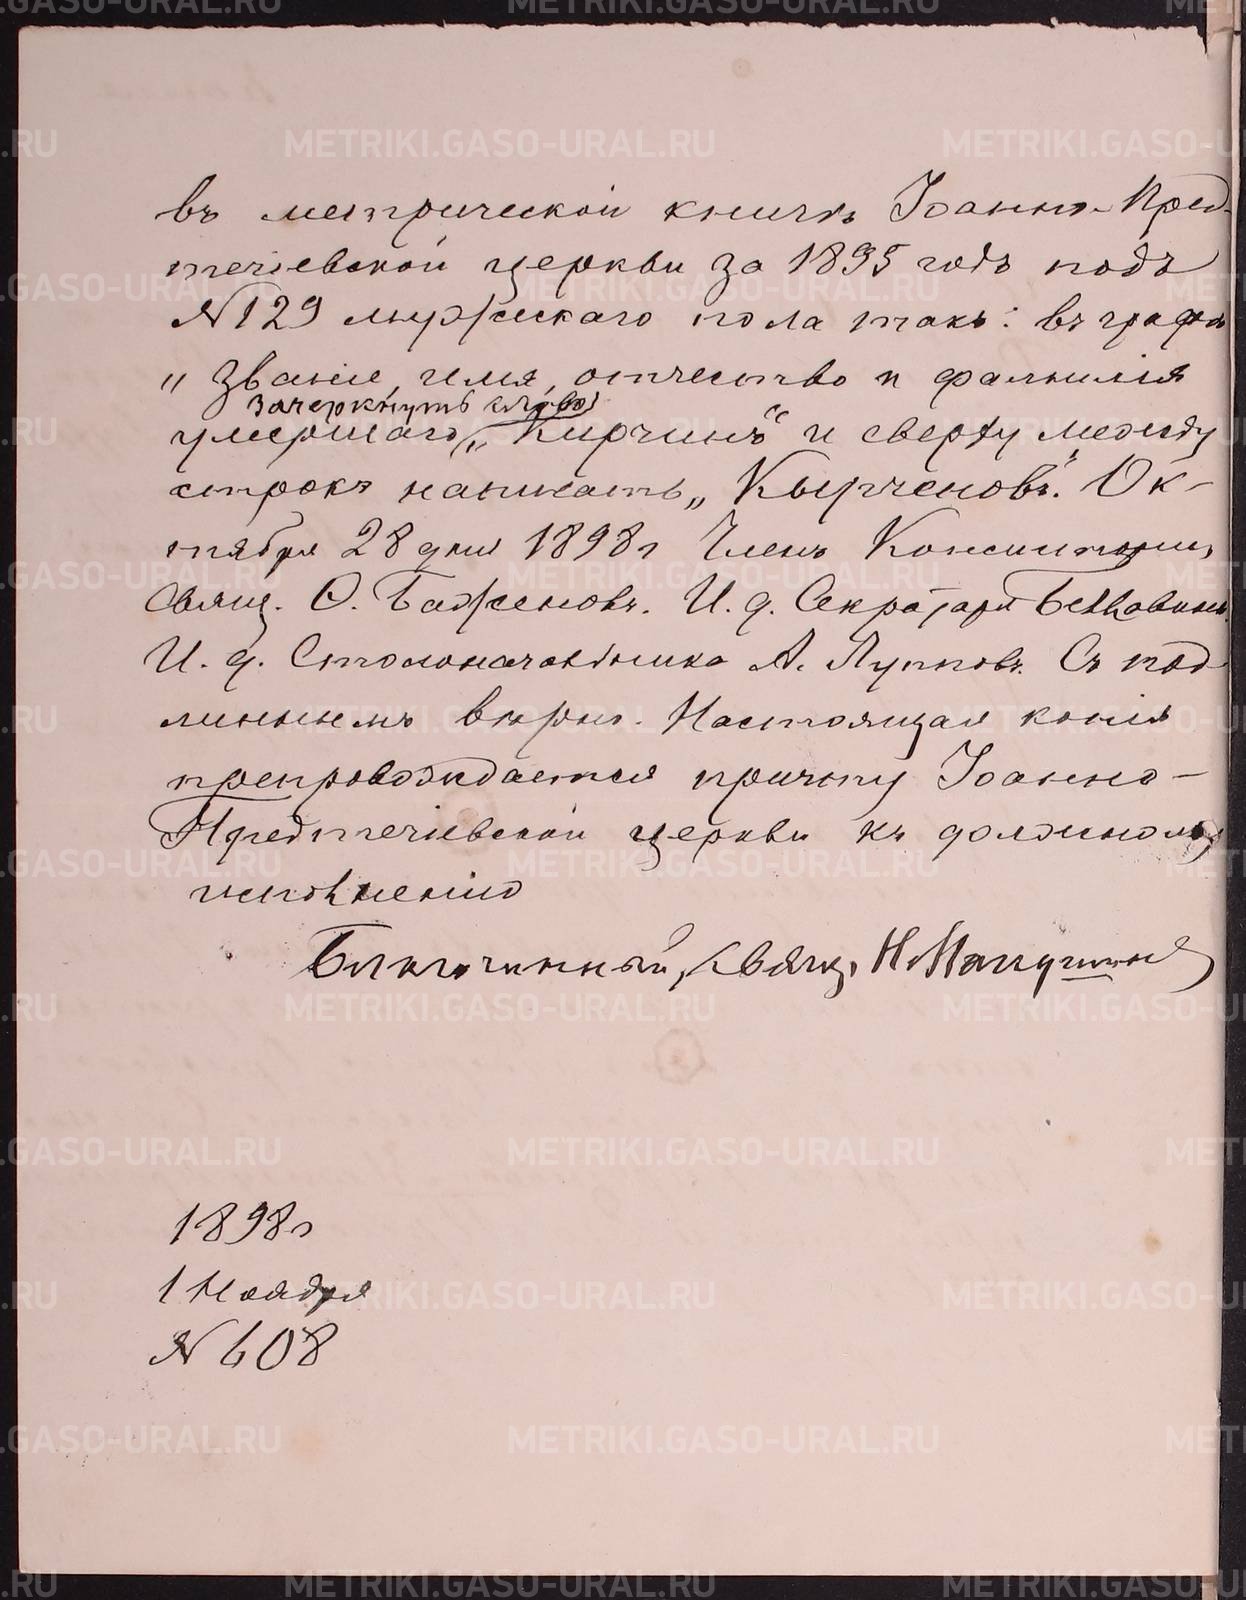 въ метрической книгѣ Іоанно-Пред-
течіевской церкви за 1895 годъ подъ
№ 129 мужескаго пола такъ: въ графѣ
„Званіе, имя, отчество и фамилія
зачеркнуть слово
умершаго, „Кирчинъ“ и сверху между
строкъ написать „Кырченовъ“. Ок-
тября 28 дня 1898 г Членъ Консисторіи,
Свящ. Ѳ. Баженовъ. И. д. Секретаря
И. д. Столоначальника А. Лупповъ. Съ под-
линнымъ вѣрно. Настоящая копія
препровождается причту Іоанно-
Предтечіевской церкви къ должному
исполненію
Благочинный, Свящ. Н.
1898 г
1 Ноября
№ 608
METRIKI.GASO-URAL.RU